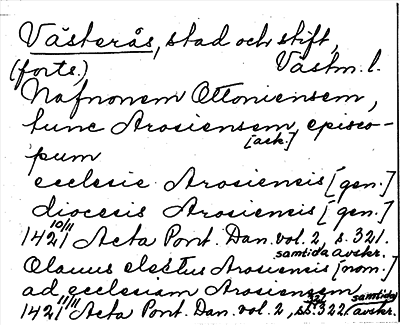 Västerås, stad och stift,
(forts.) Västm. l.
Nafnonem Ottoniensem,
tunc Arosiensem [ack.] episco-
pum
ecclesie Arosiensis [gen.]
diocesis Arosiensis [gen.]
1421 10/11 Acta Pont. Dan. vol. 2, s. 321.
samtida avskr.
Olauus electus Arosiensis [nom.]
ad ecclesiam Arosiensem
1421 11/11 Acta Pont. Dan. vol. 2, s. 322. samtidig avskr.